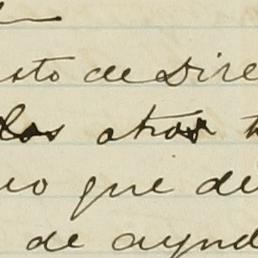 sto de Dire
los otros t
eo que de
de ayud